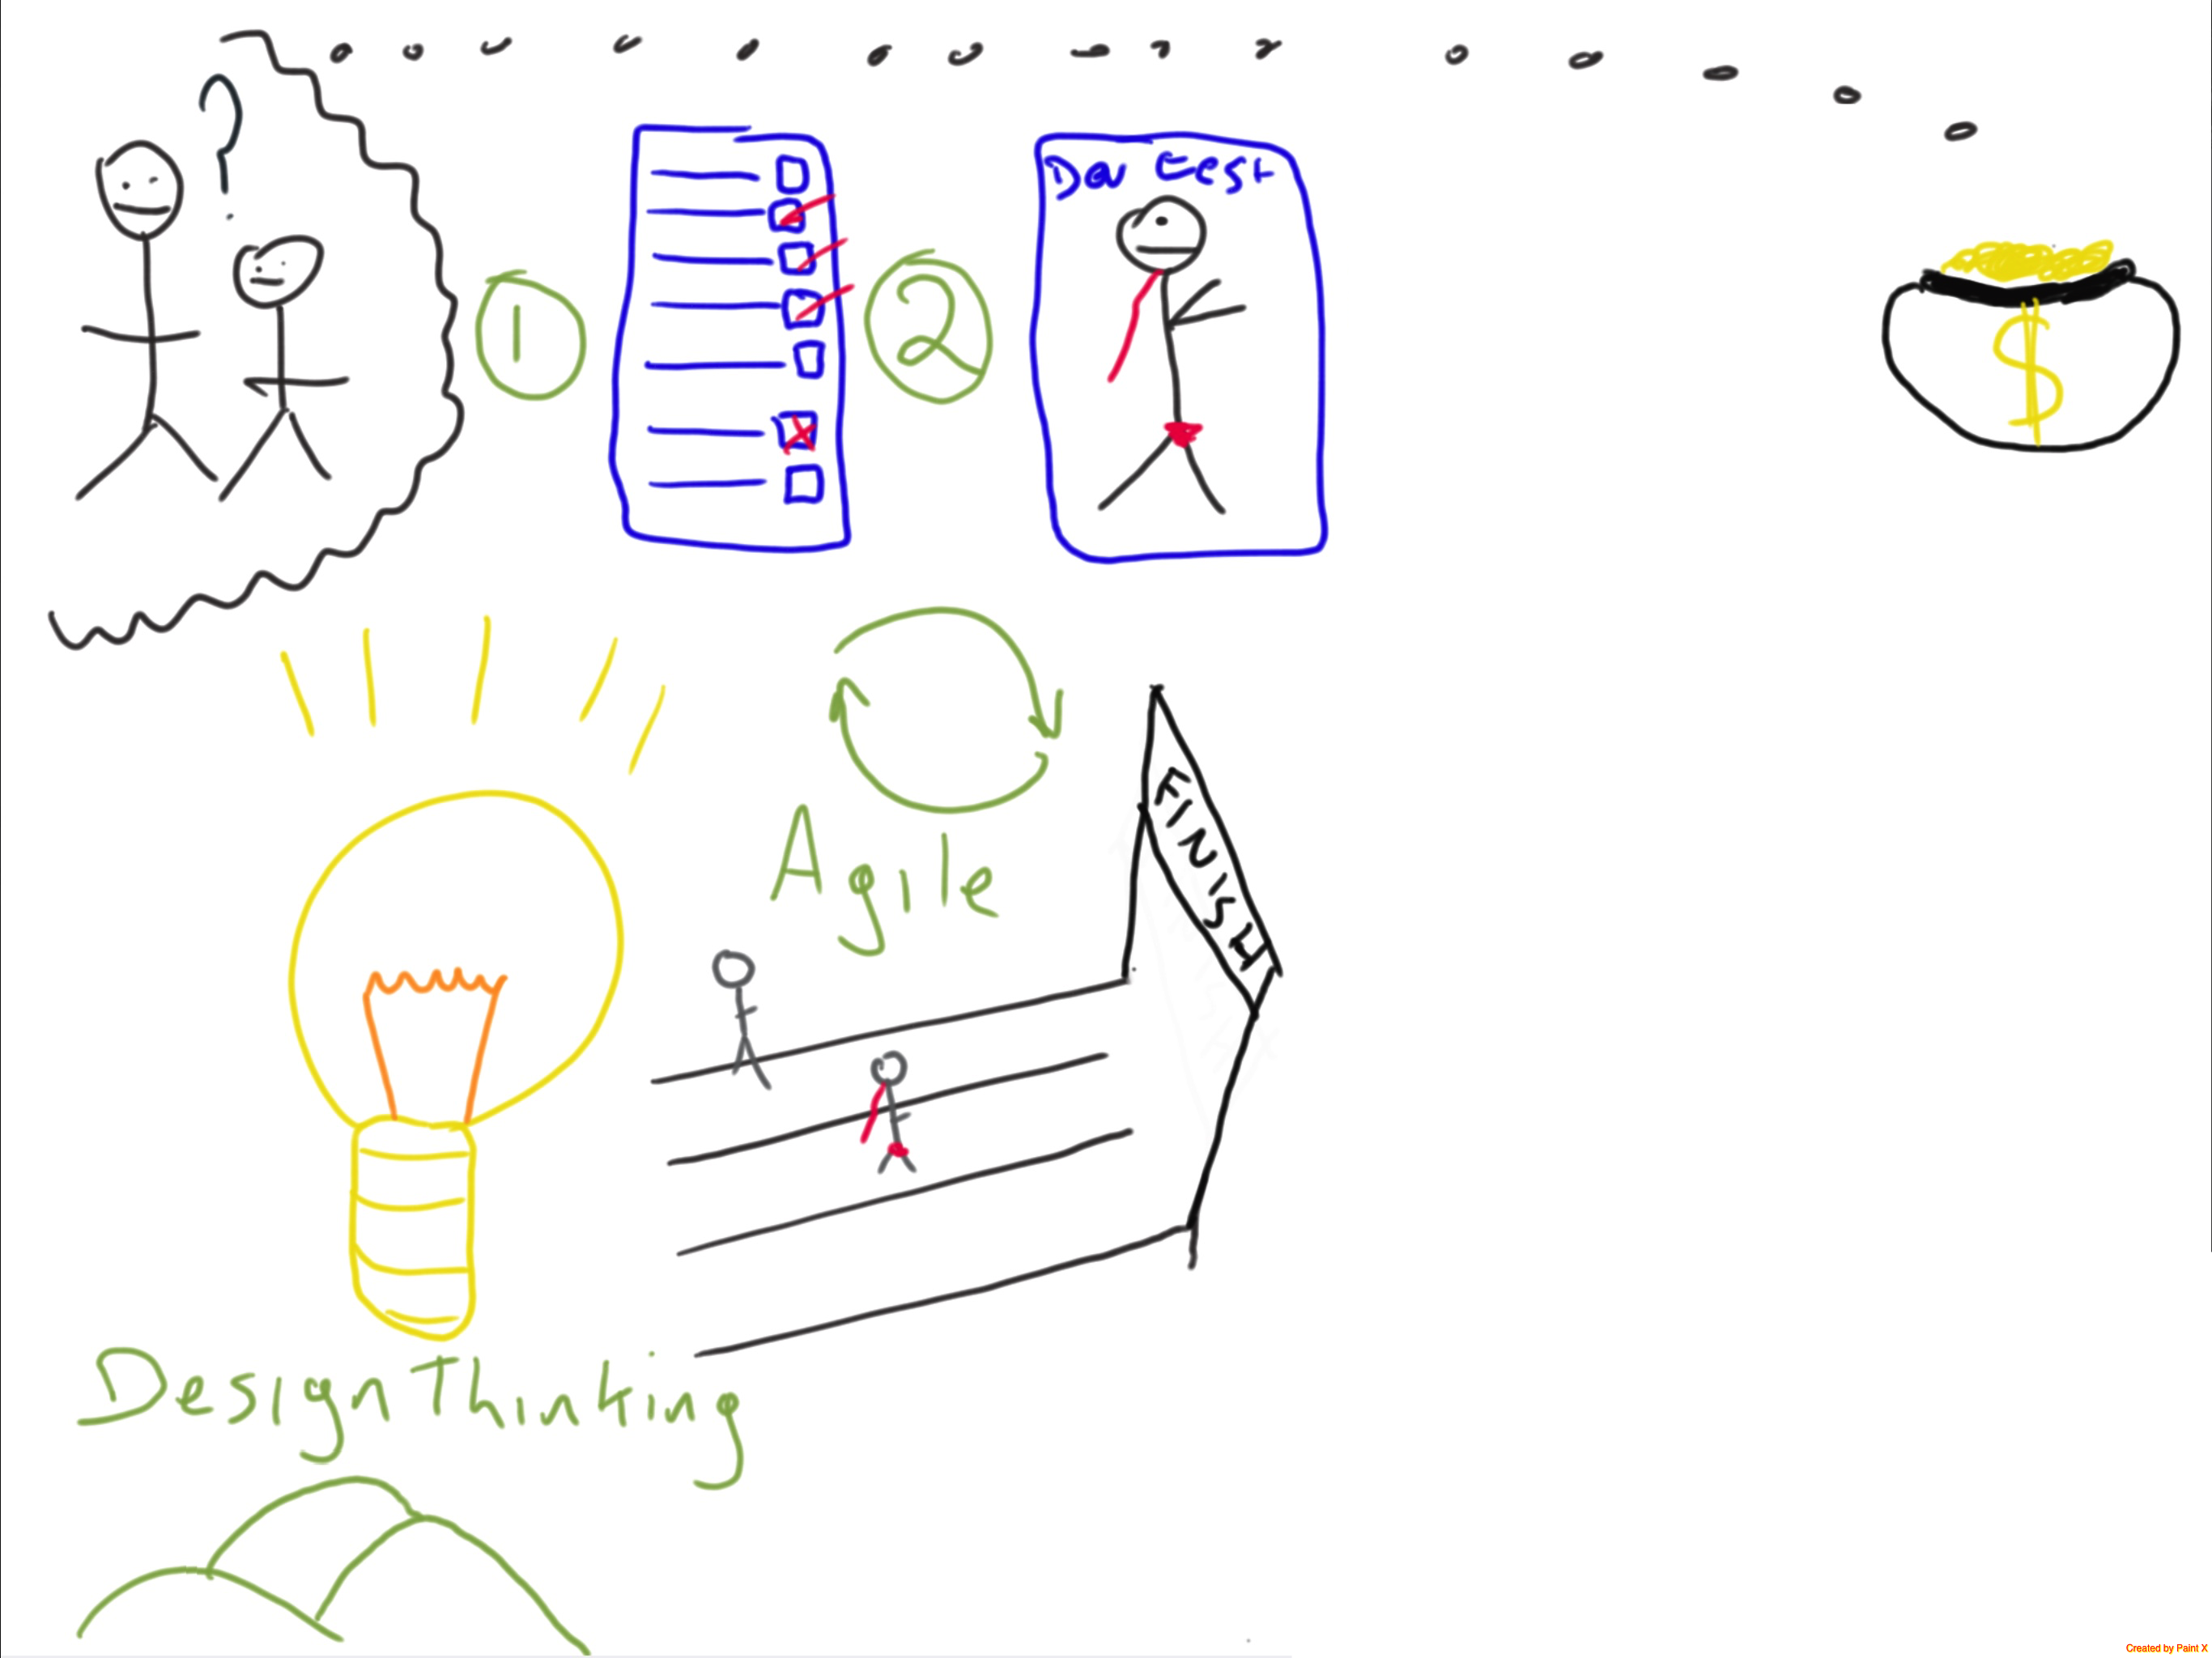 ?
1
2
Dev Fest
$
Agile
FINISH
Design Thinking
Created by Paint X